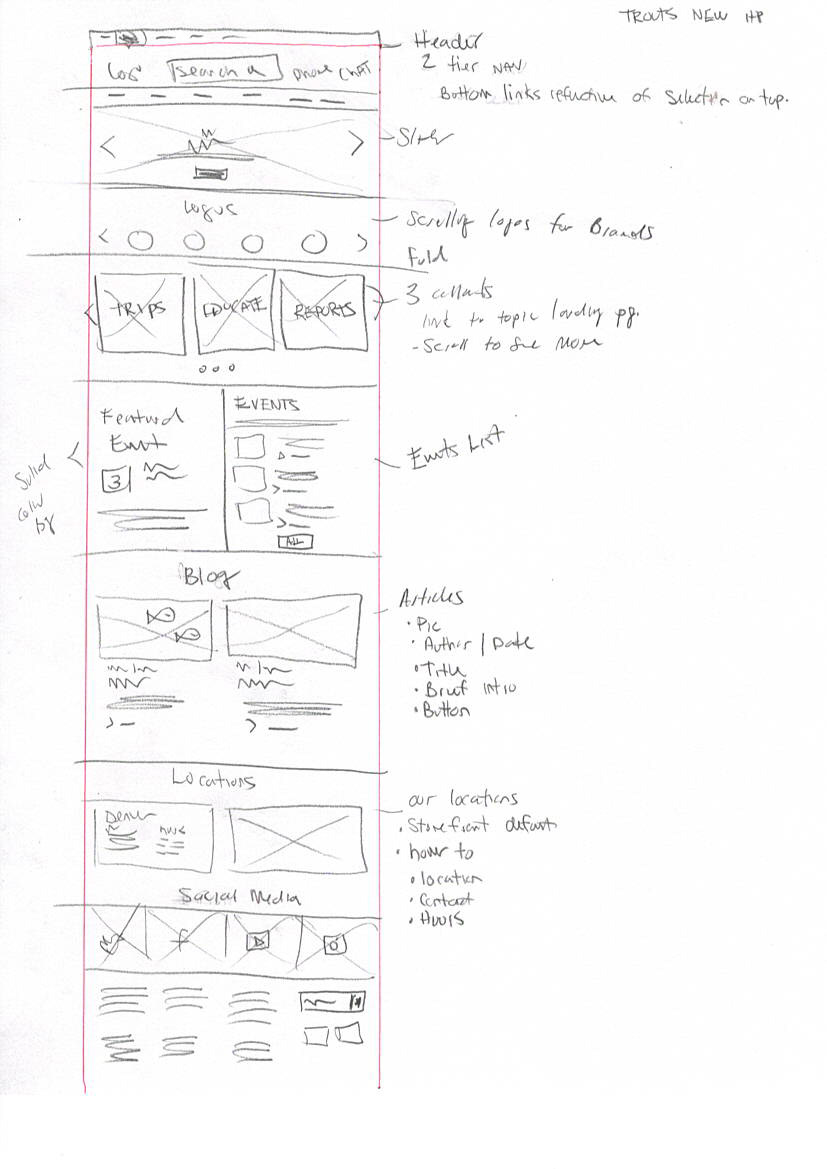 TROUTS NEW HP
Header
2 tier NAV
Logo search phone CHAT
Bottom links reflective of selection on top.
Slider
Logos
Scrolling logos for Brands
Fold
TRIPS EDUCATE REPORTS
3 callouts
link to topic landing pg.
- Scroll to see More
Featured
Event
3
EVENTS
All
Events List
Solid
color
bg
Blog
Articles
• Pic
• Author / Date
• Title
• Brief intro
• Button
Locations
Denver
Hours
our locations
• Storefront default
• hover to
• location
• Contact
• Hours
Social Media
f